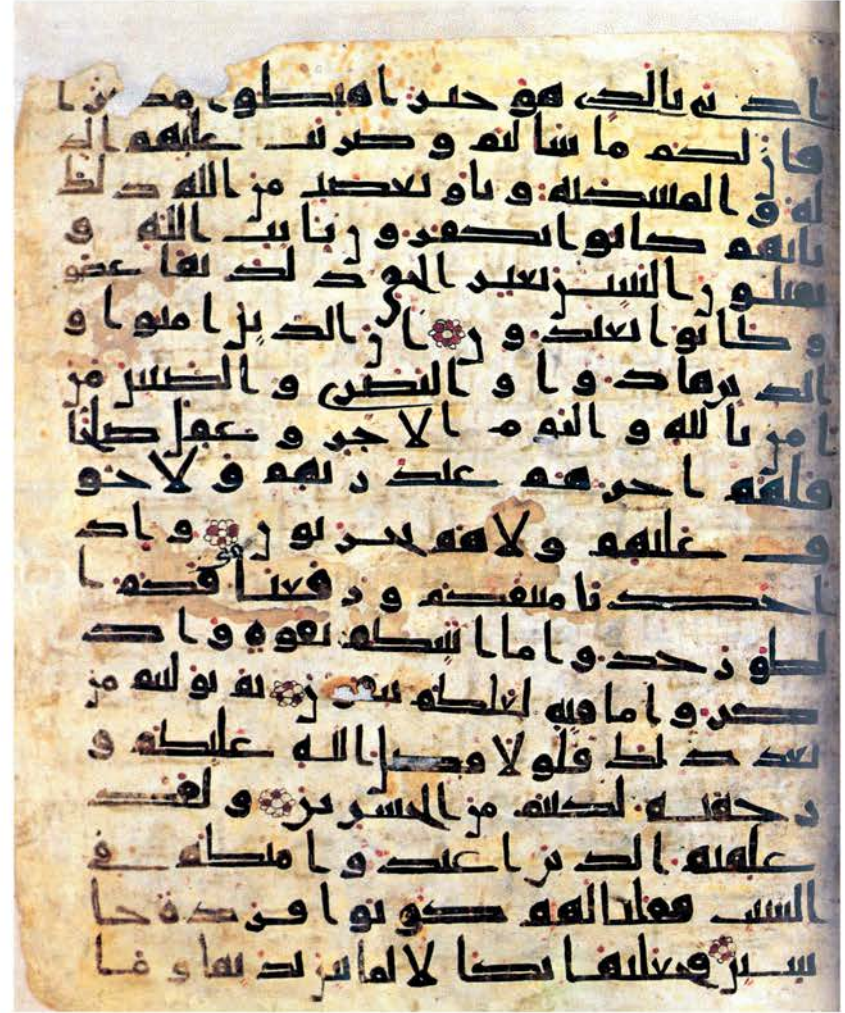 ادنى بالذى هو خير اهبطوا مصرا
فان لكم ما سالتم و ضربت عليهم الذ
لة و المسكنة و باو بغضب من الله ذلك
بانهم كانوا يكفرون بايت الله و
يقتلون النبين بغير الحق ذلك بما عصو
ا و كانوا يعتدون ان الذين امنوا و
الذين هادوا و النصرى و الصبين من
امن بالله و اليوم الاخر و عمل صلحا
فلهم اجرهم عند ربهم و لا خو
ف عليهم ولا هم يحزنون و اذ
اخذنا ميثقكم و رفعنا فوقكم ا
لطور خذوا ما اتينكم بقوة و اذ
كروا ما فيه لعلكم تتقون ثم توليتم من
بعد ذلك فلولا فضل الله عليكم و
رحمته لكنتم من الخسرين و لقد
علمتم الذين اعتدوا منكم في
السبت فقلنا لهم كونوا قردة خا
سين فجعلنها نكلا لما بين يديها و ما